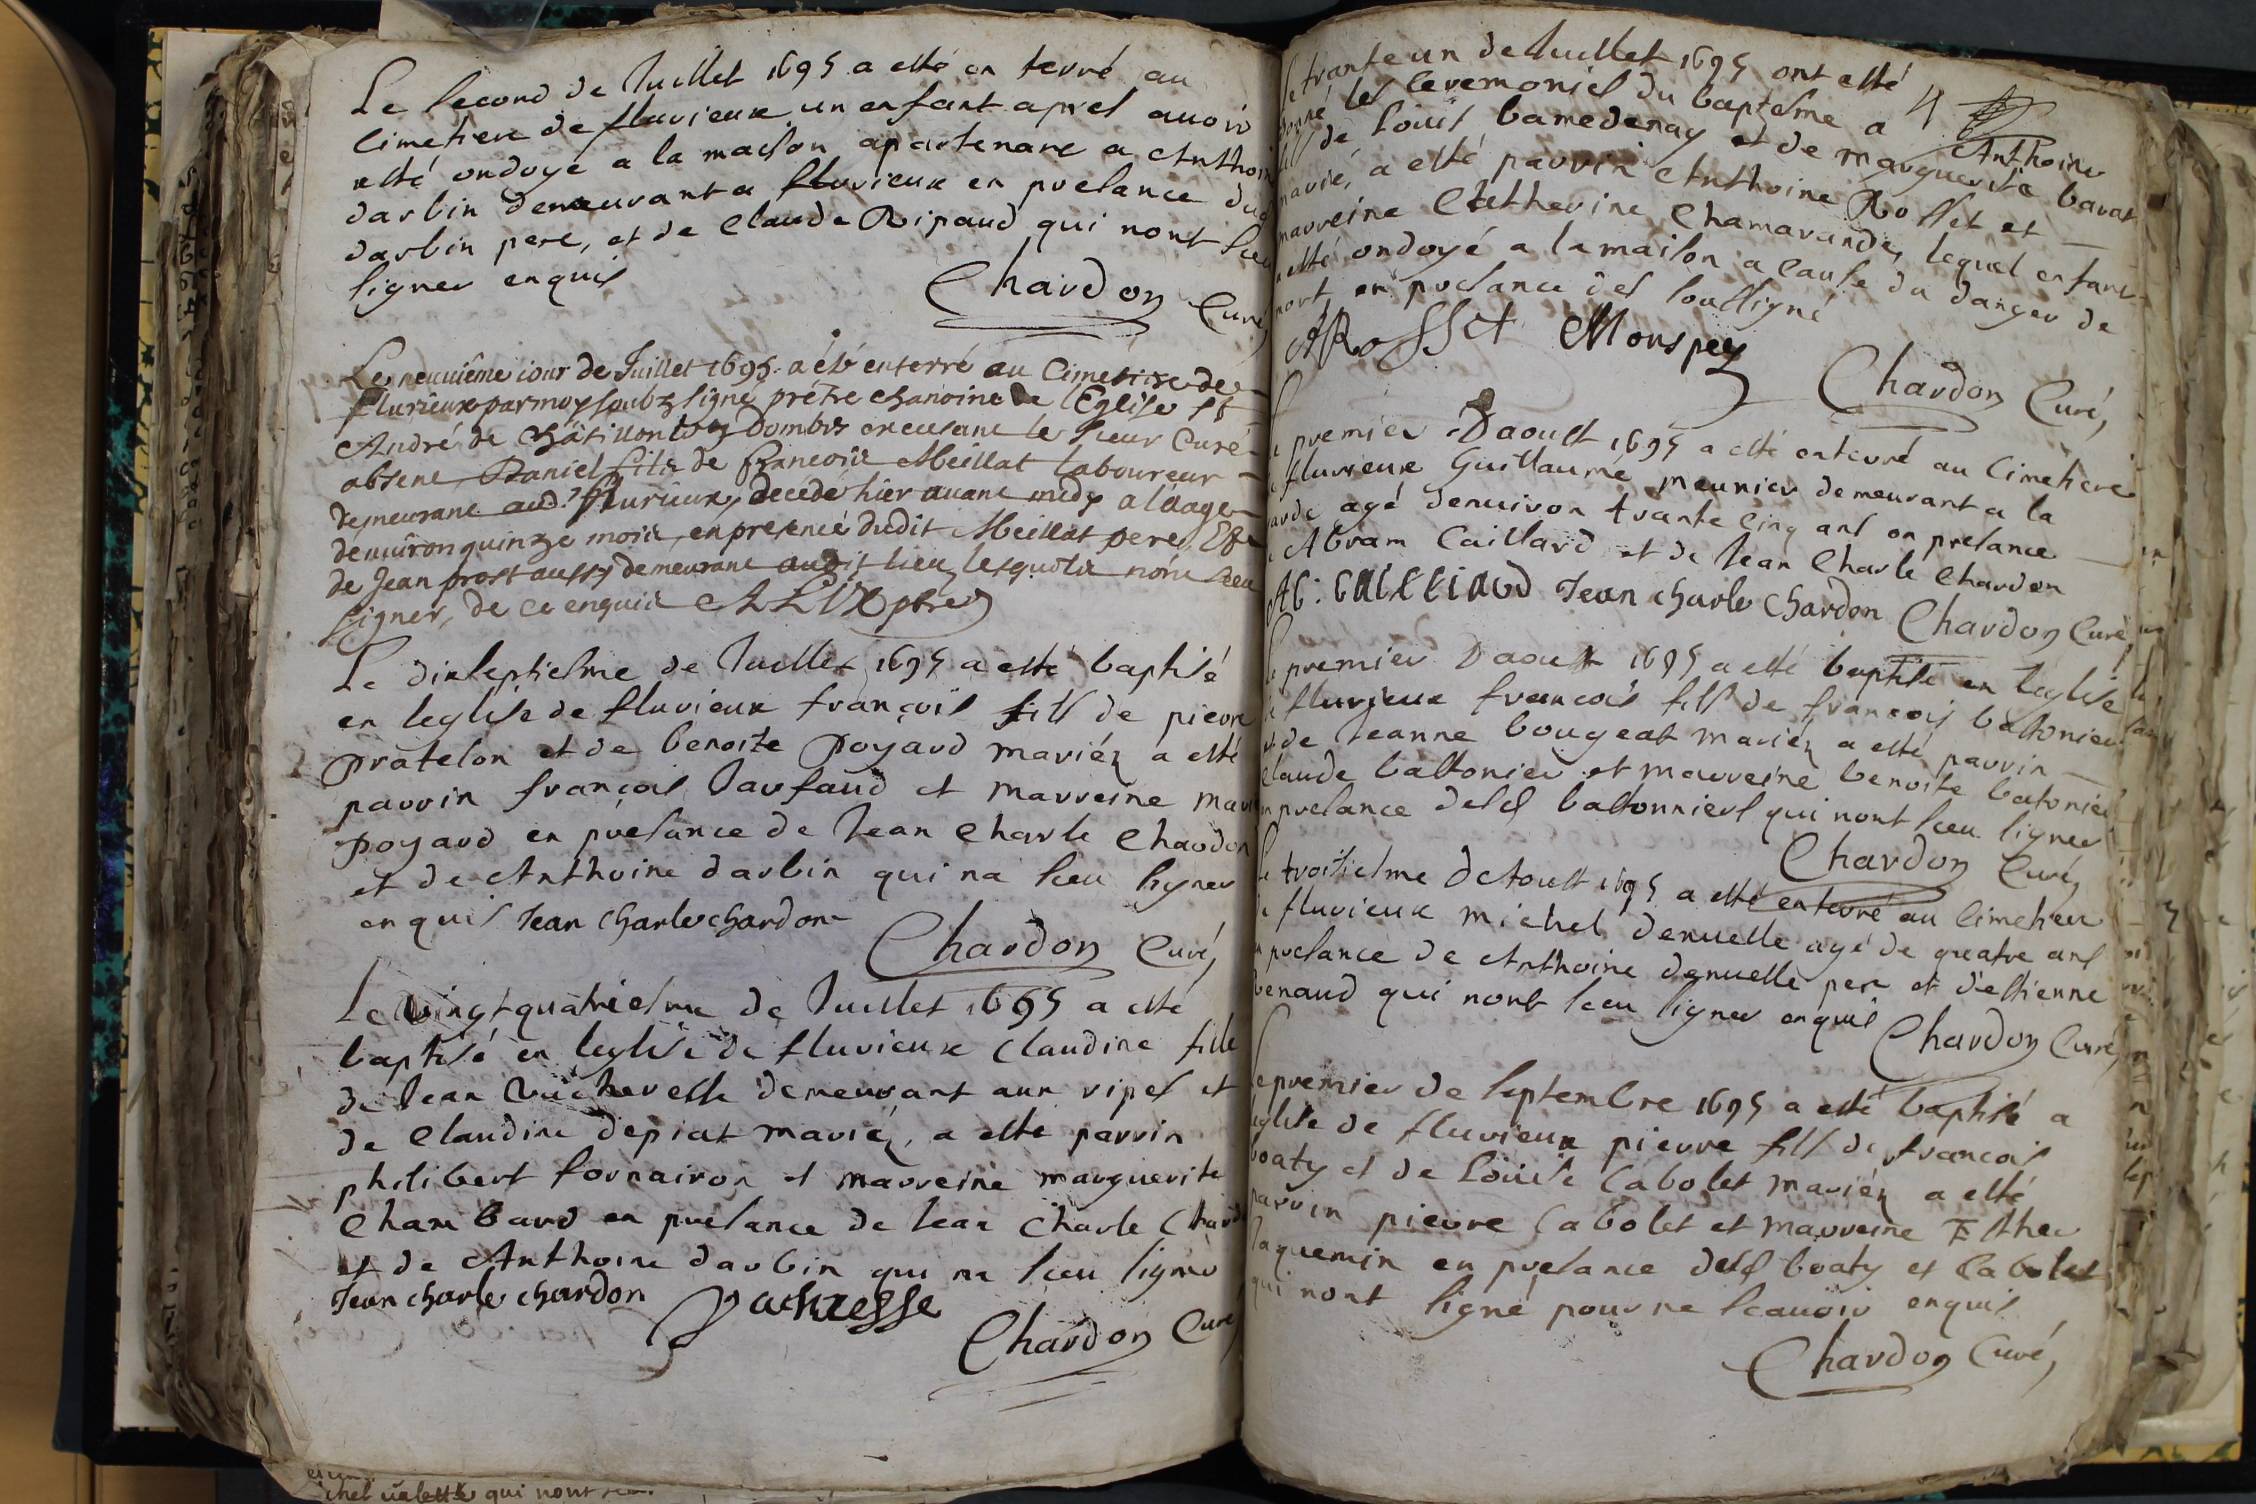 Le second de Juillet 1695 a esté en terré au
Cimetiere de flurieux un enfant apres avoir
esté ondoyé a la maison apartenant a Anthoin
darbin demeurant a flurieux en presance dud
darbin pere, et de Claude Ripaud qui nont sceu
signer enquis
Chardon Curé,
Le neuuiême iour de Juillet 1695. a été enterré au Cimetiere de
flurieux par moy soubz signé prêtre chanoine de l'Eglise St
André de Châtillon les Dombes en cusant le sieur Curé
absent, Daniel fils de francois Meillat laboureur
demeurant aud. flurieux, decedé hier auant midy a l'aage
denuiron quinze mois, en presence dudit Meillat pere, Et
de Jean prost aussy demeurant audit lieu, lesquels nont sceu
signer, de ce enquis ALLIX pbre
Le dixseptiesme de Juillet 1695 a esté baptisé
en leglise de flurieux françois fils de pierre
pratelon et de benoite poyard mariéz a esté
parrin françois Jarfaud et marreine marie
poyard en presance de Jean Charle Chardon
et de Anthoine darbin qui na sceu signer
enquis Jean Charles chardon
Chardon Curé,
Le vingt quatriesme de Juillet 1695 a esté
baptisé en leglise de flurieux Claudine fille
de Jean Vucheresse demeurant aux ripes et
de Claudine depiat mariéz, a esté parrin
philibert fornairon et marreine marguerite
Chambard en presance de Jean Charle Chard
et de Anthoine darbin qui na sceu signer
Jean charle chardon
Chardon Curé,
chel valette qui nont
Le trante un de Juillet 1695 ont esté
donné les ceremonies du baptesme a Anthoine
fils de Louis bamedenay et de marguerite barat
mariéz, a esté parrin Anthoine Rosset et
marreine Catherine Chamarande, lequel enfant
a esté ondoyé a la maison a cause du danger de
mort en presance des soussigné
A Rosset Monspey
Chardon Curé,
Le premier Daoust 1695 a esté enterré au Cimetiere
de flurieux Guillaume meunier demeurant a la
agé denuiron trante cinq ans en presance
de Abram Caillard et de Jean Charle Chardon
AB: CAILLIAUD Jean charle Chardon Chardon Curé
Le premier Daoust 1695 a esté baptisé en leglise
de flurieux francois fils de francois bastonier
et de Jeanne bougeat mariéz a esté parrin
Claude bastonier et marreine benoite batonier
en presance desd bastonniers qui nont sceu signer
Chardon Curé,
Le troisiesme de Aoust 1695 a esté enterré au Cimetiere
de flurieux michel denuelle agé de quatre ans
en presance de Anthoine denuelle pere et d'estienne
benaud qui nont sceu signer enquis
Chardon Curé,
Le premier de septembre 1695 a esté baptisé a
leglise de flurieux pierre fils de francois
boaty et de Louise Cabolet mariéz a esté
parrin pierre Cabolet et marreine Esther
Jaquemin en presance desd boaty et Cabolet
qui nont signé pour ne scauoir enquis
Chardon Curé,